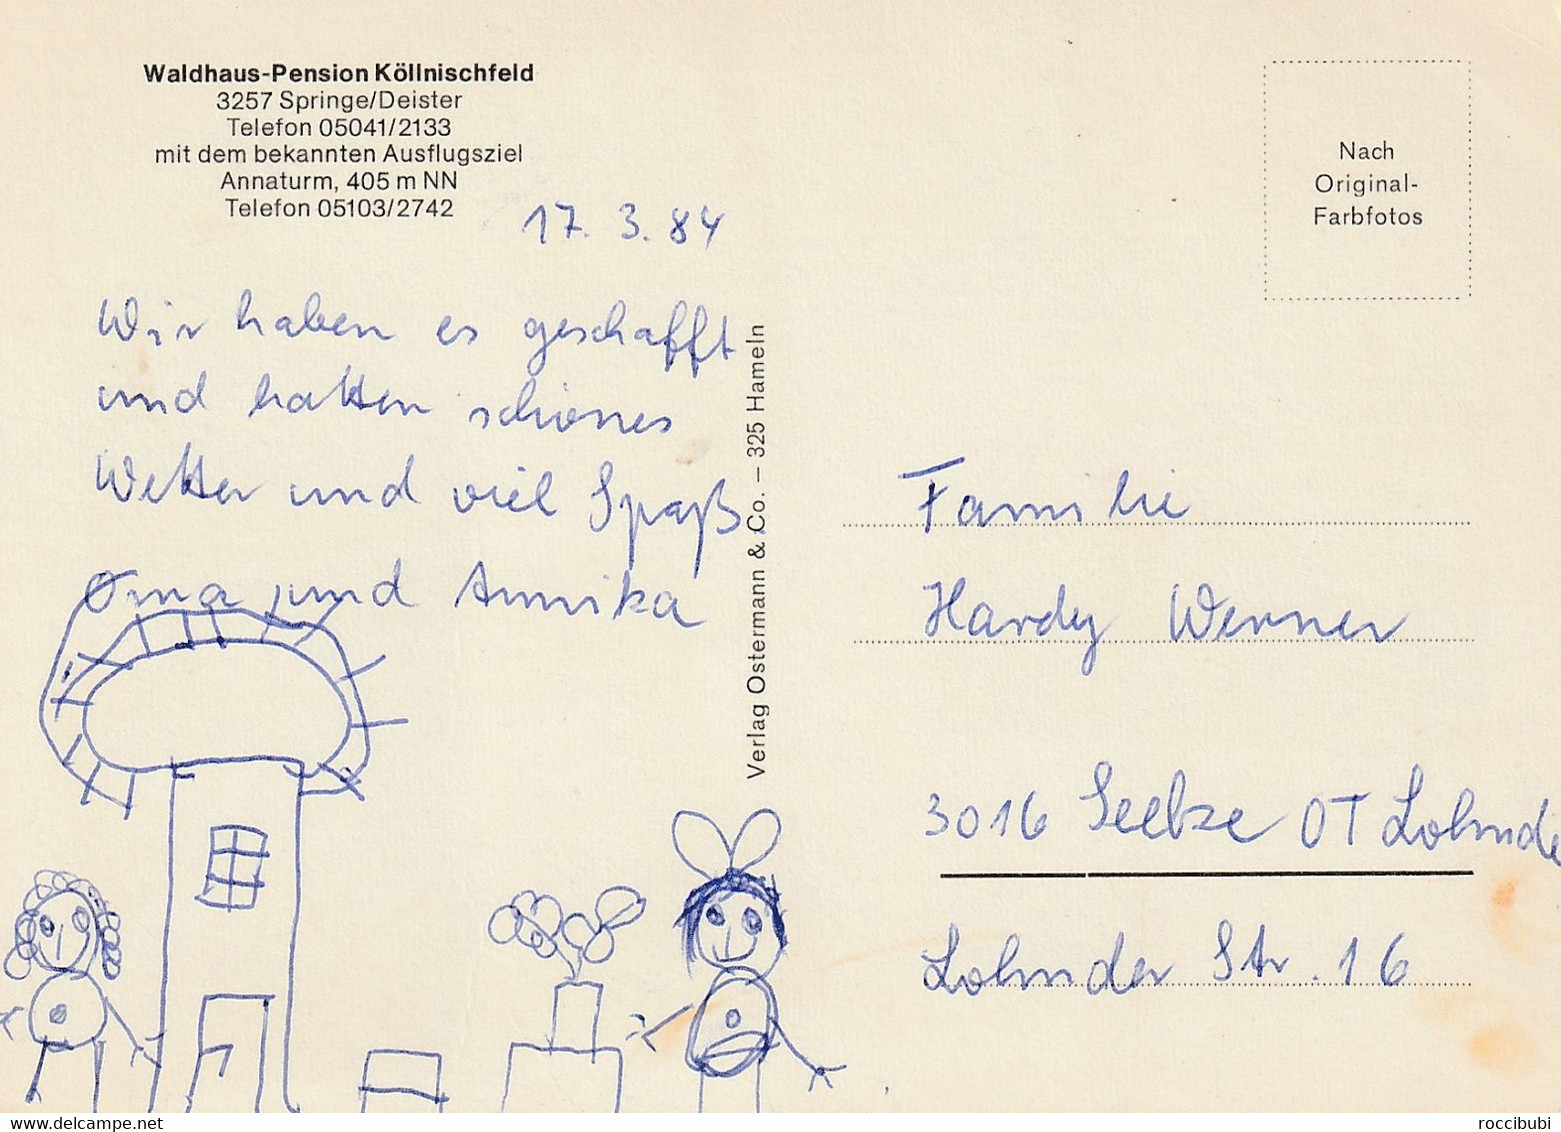 Waldhaus-Pension Köllnischfeld
3257 Springe/Deister
Telefon 05041/2133
mit dem bekannten Ausflugsziel
Annaturm, 405 m NN
Telefon 05103/2742
17. 3. 84
Wir haben es geschafft
und hatten schönes
Wetter und viel Spaß.
Oma und Annika
Verlag Ostermann & Co. – 325 Hameln
Nach
Original-
Farbfotos
Familie
Hardy Werner
3016 Seelze OT Lohnde
Lohnder Str. 16
www.delcampe.net
roccibubi